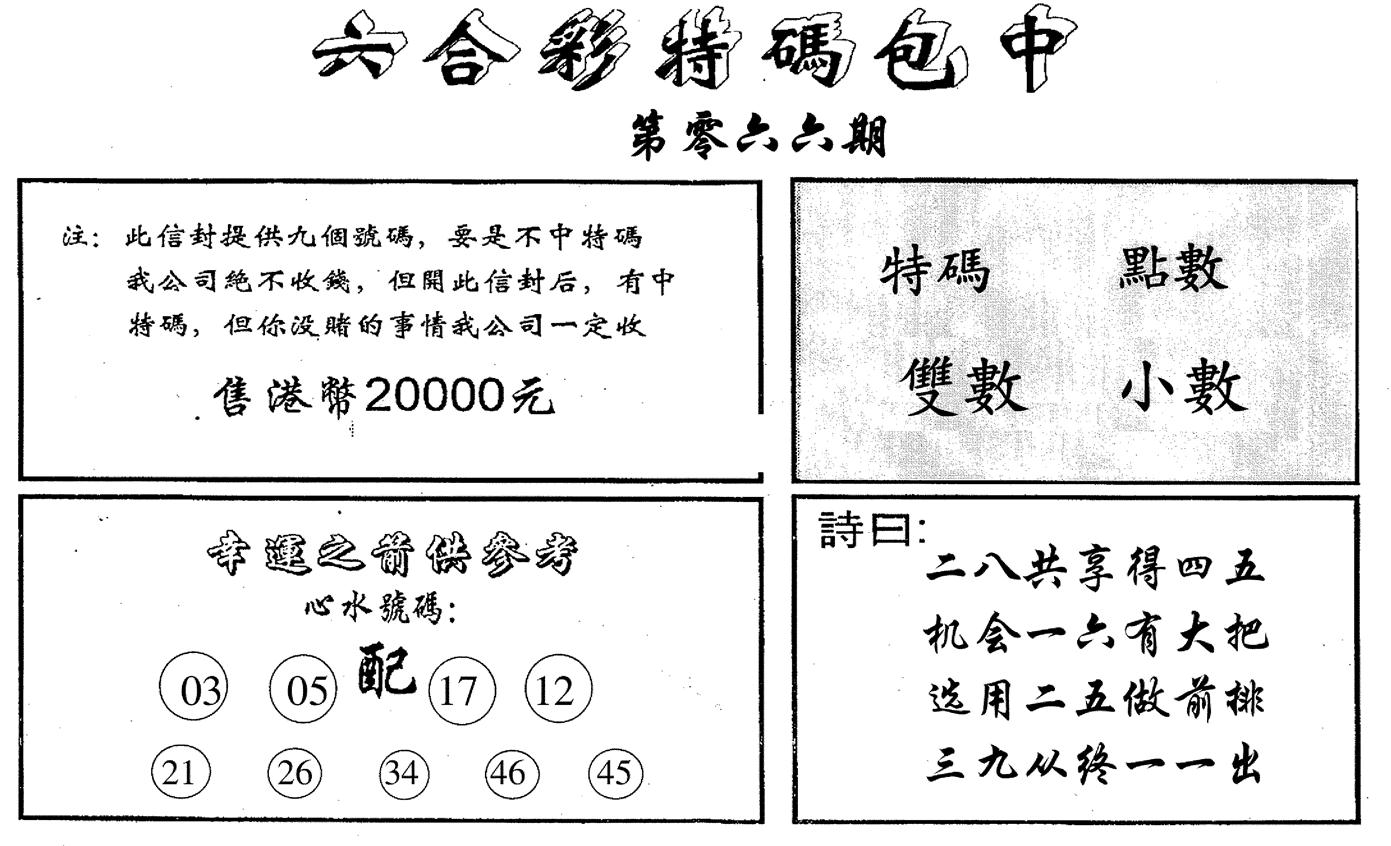 六合彩特碼包中
第零六六期
注：此信封提供九個號碼，要是不中特碼
我公司絶不收錢，但開此信封后，有中
特碼，但你没賭的事情我公司一定收
售港幣20000元
特碼 點數
雙數 小數
幸運之箭供參考
心水號碼：
03 05 配 17 12
21 26 34 46 45
詩曰：
二八共享得四五
机会一六有大把
选用二五做前排
三九从终一一出